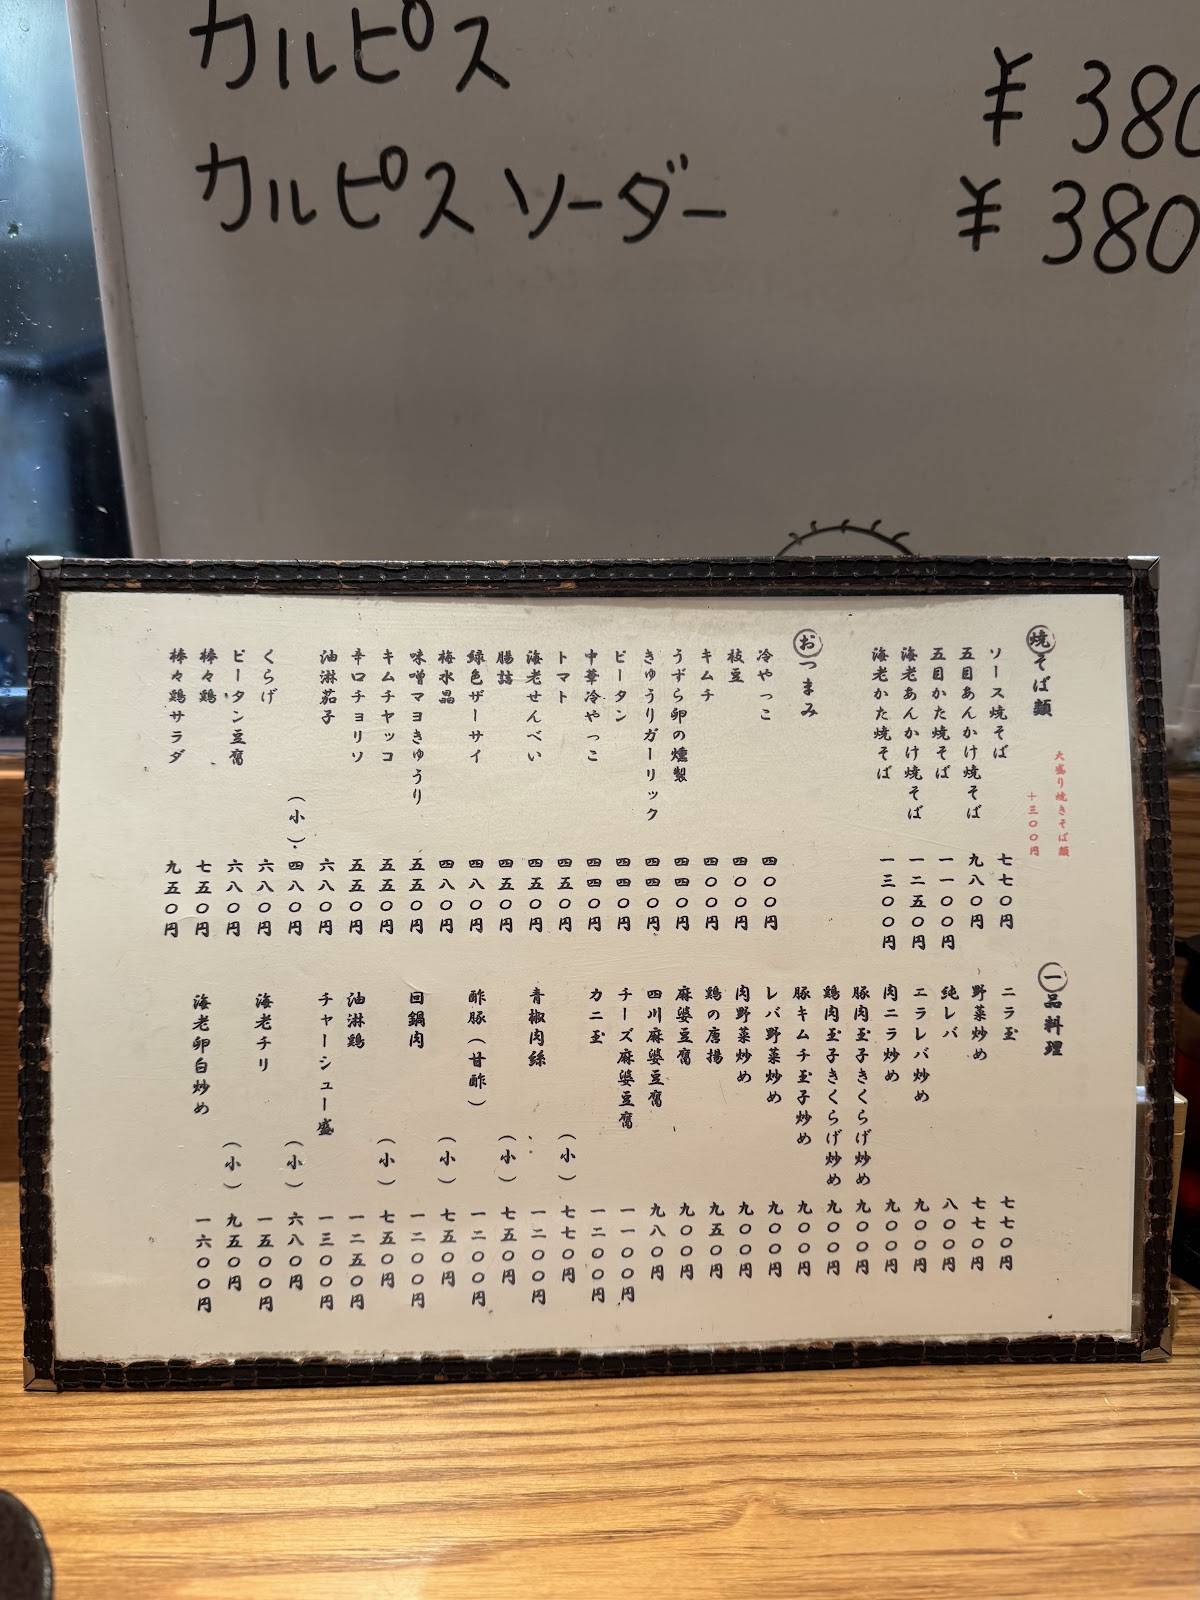 カルピス ¥380
カルピスソーダー ¥380
焼そば類
大盛り焼きそば類
+三〇〇円
ソース焼そば 七七〇円
五目あんかけ焼そば 九八〇円
五目かた焼そば 一一〇〇円
海老あんかけ焼そば 一二五〇円
海老かた焼そば 一三〇〇円
おつまみ
冷やっこ 四〇〇円
枝豆 四〇〇円
キムチ 四〇〇円
うずら卵の燻製 四四〇円
きゅうりガーリック 四四〇円
ピータン 四四〇円
中華冷やっこ 四四〇円
トマト 四五〇円
海老せんべい 四五〇円
腸詰 四五〇円
緑色ザーサイ 四八〇円
梅水晶 四八〇円
味噌マヨきゅうり 五五〇円
キムチヤッコ 五五〇円
辛口チョリソ 五五〇円
油淋茄子 六八〇円
(小) 四八〇円
くらげ 六八〇円
ピータン豆腐 六八〇円
棒々鶏 七五〇円
棒々鶏サラダ 九五〇円
一品料理
ニラ玉 七七〇円
野菜炒め 七七〇円
純レバ 八〇〇円
ニラレバ炒め 九〇〇円
肉ニラ炒め 九〇〇円
豚肉玉子きくらげ炒め 九〇〇円
鶏肉玉子きくらげ炒め 九〇〇円
豚キムチ玉子炒め 九〇〇円
レバ野菜炒め 九〇〇円
肉野菜炒め 九〇〇円
鶏の唐揚 九五〇円
麻婆豆腐 九〇〇円
四川麻婆豆腐 九八〇円
チーズ麻婆豆腐 一一〇〇円
カニ玉 一二〇〇円
(小) 七七〇円
青椒肉絲 一二〇〇円
(小) 七五〇円
酢豚(甘酢) 一二〇〇円
(小) 七五〇円
回鍋肉 一二〇〇円
(小) 七五〇円
油淋鶏 一二五〇円
チャーシュー盛 一三〇〇円
(小) 六八〇円
海老チリ 一五〇〇円
(小) 九五〇円
海老卵白炒め 一六〇〇円